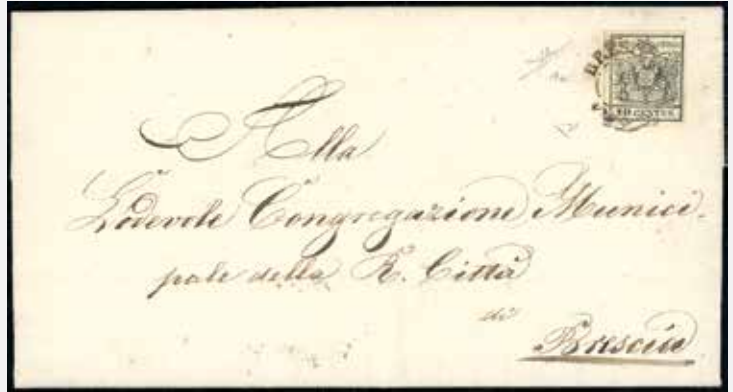 BRE
10 CENTES
Alla
Lodevole Congregazione Munici-
pale della R. Città
di
Brescia